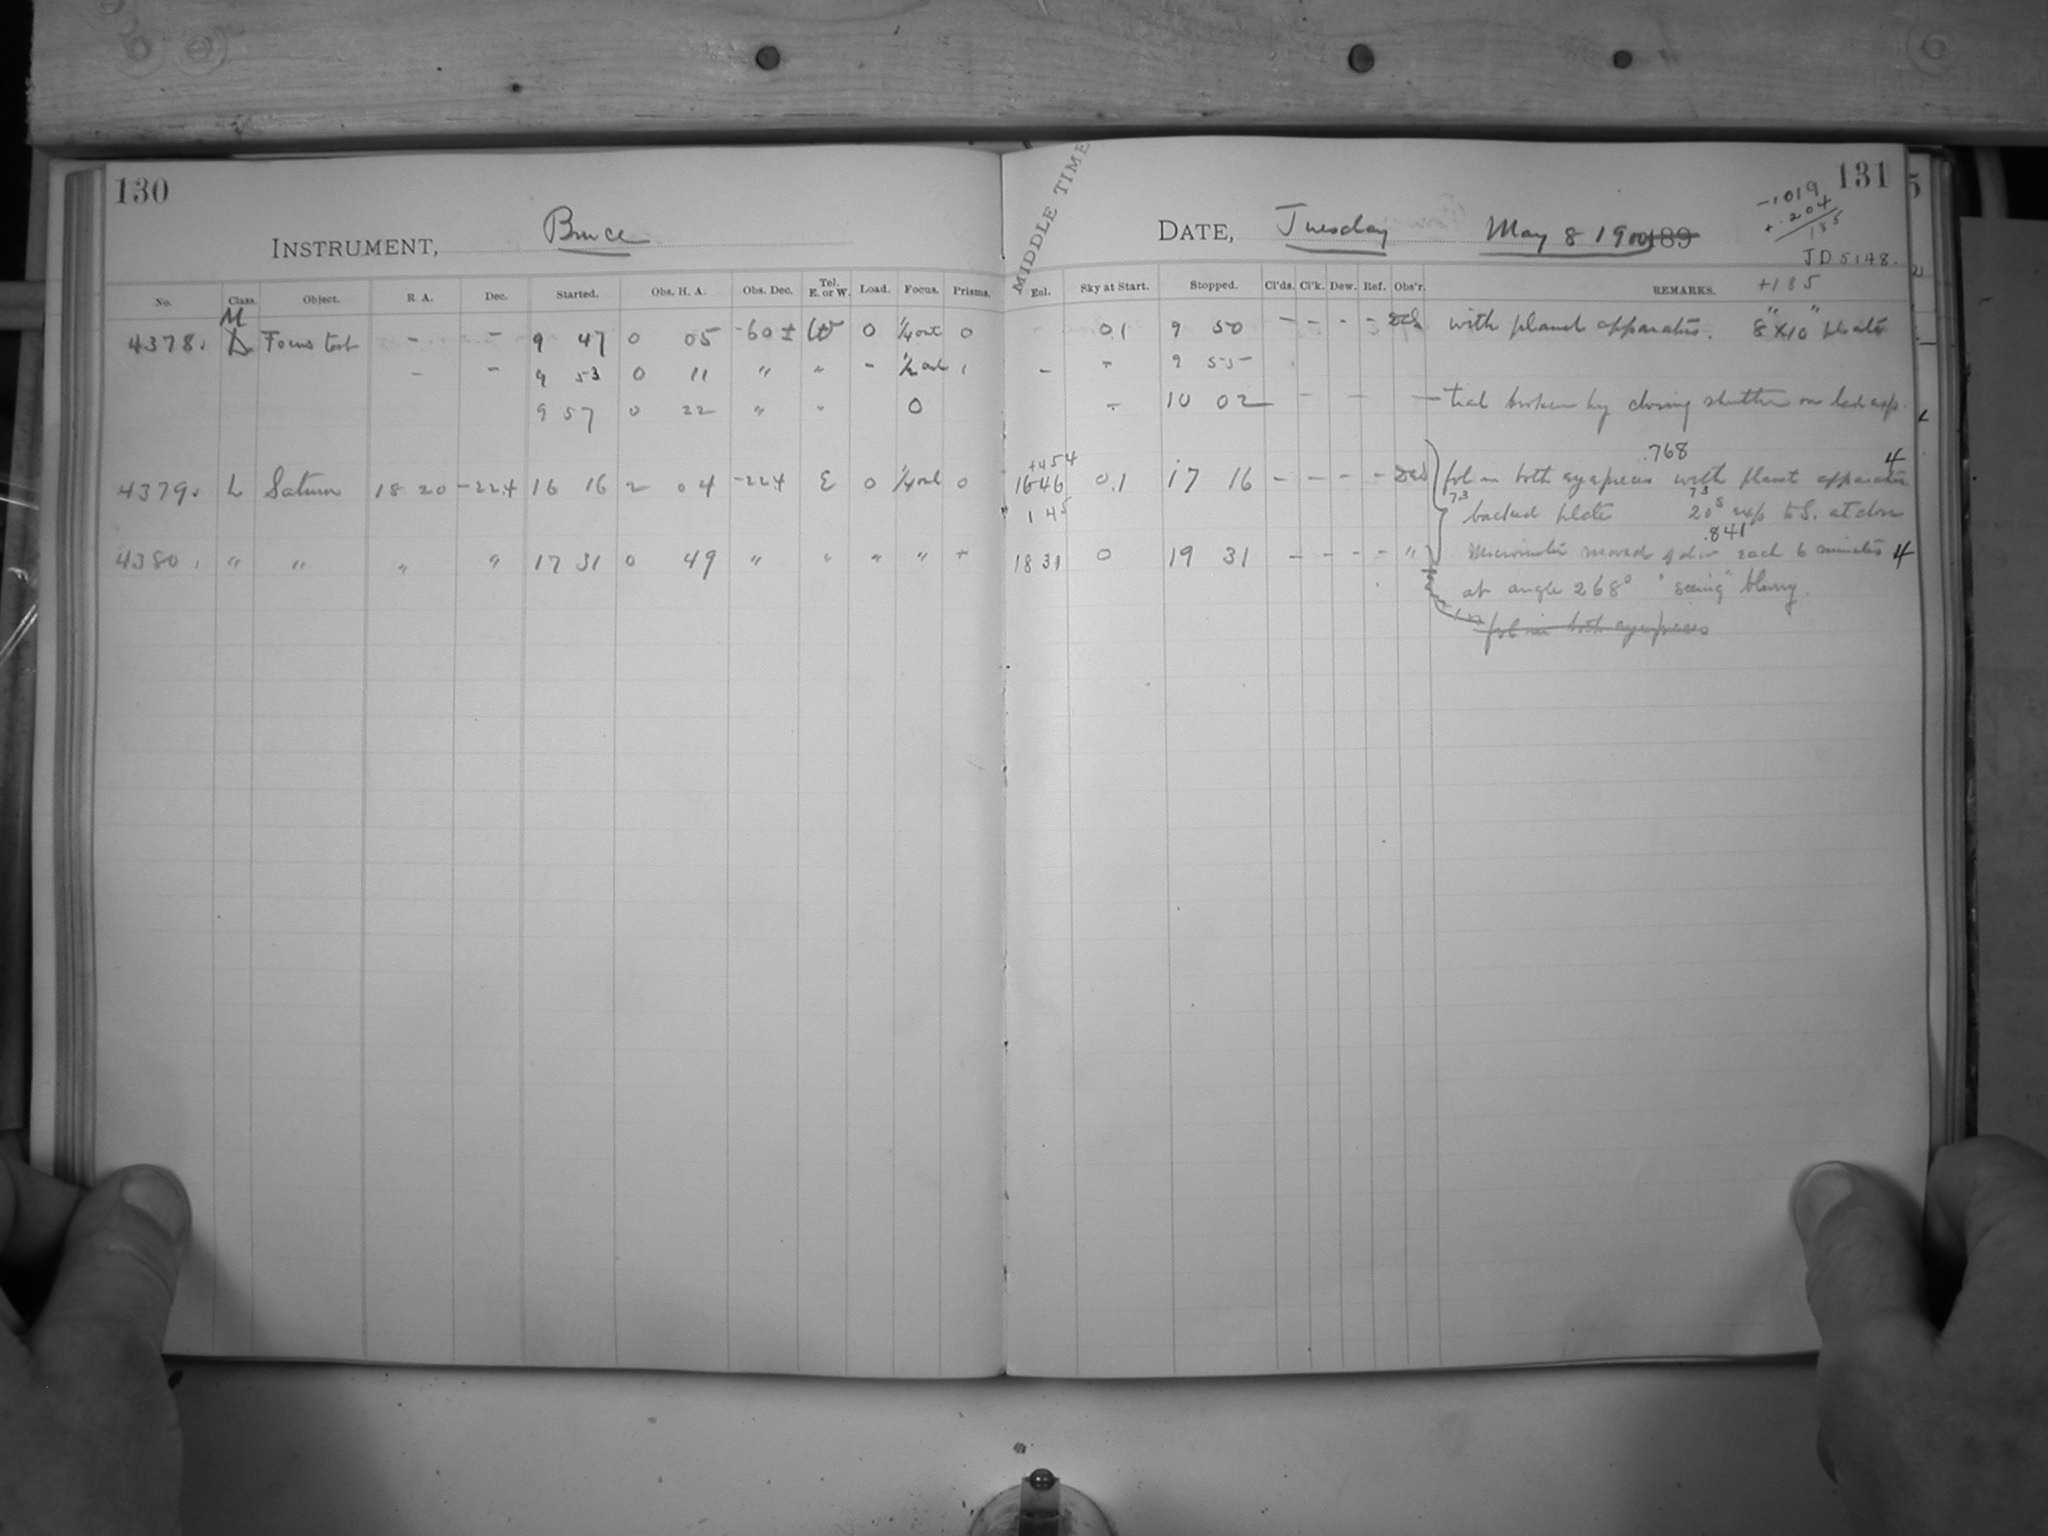 130
INSTRUMENT, Bruce
No. Class. Object. R. A. Dec. Started. Obs. H. A. Obs. Dec. Tel. E. or W. Load. Focus. Prisms.
M
4378. L Focus test - - 9 47 0 05 -60± W 0 1/4 out 0
- - 9 53 0 11 " " - 1/2 out
9 57 0 22 " " 0
4379. L Saturn 18 20 -22.4 16 16 2 04 -22.4 E 0 1/4 out 0
4380. " " " " 17 31 0 49 " " " "
131
MIDDLE TIME
DATE, Tuesday May 8 1900 189
-1019
+.204
185
JD 5148.
Enl. Sky at Start. Stopped. Cl'ds. Cl'k. Dew. Ref. Obs'r. REMARKS. +185
0.1 9 50 - - - - with planet apparatus. 8"×10" plate
- " 9 55 -
" 10 02 - - - trail broken by closing shutter on last exp.
+454 .768 4
1646 0.1 17 16 - - - - fol in both eyepieces with planet apparatus
145 73 backed plate 73 20s exp to S. at close
.841
1831 0 19 31 - - - - " Micrometer moved 9 div each 6 minutes 4
at angle 268° "seeing" blurry.
fol in both eyepieces